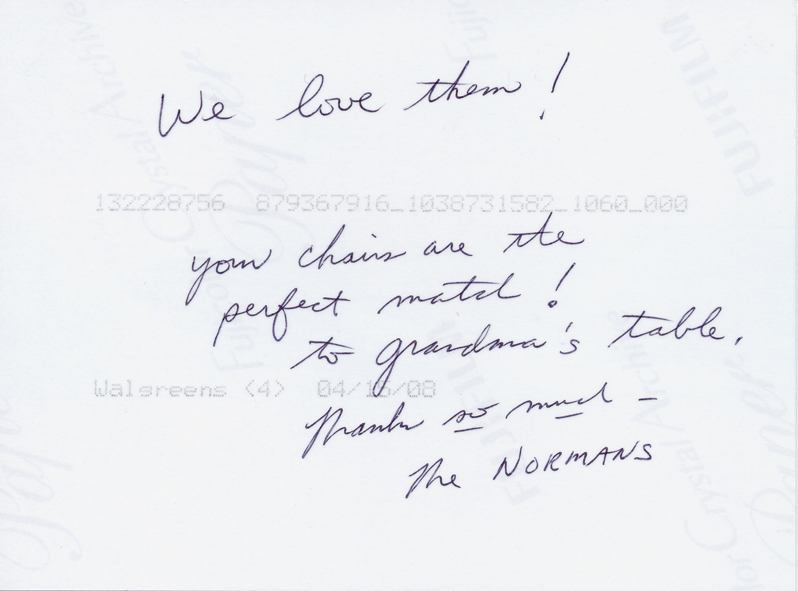 We love them!
132228756 879367916_1038731582_1060_000
your chairs are the
perfect match!
to grandma's table.
Walgreens (4) 04/15/08
Thanks so much –
The NORMANS
FUJIFILM
Fujicolor Crystal Archive
Paper